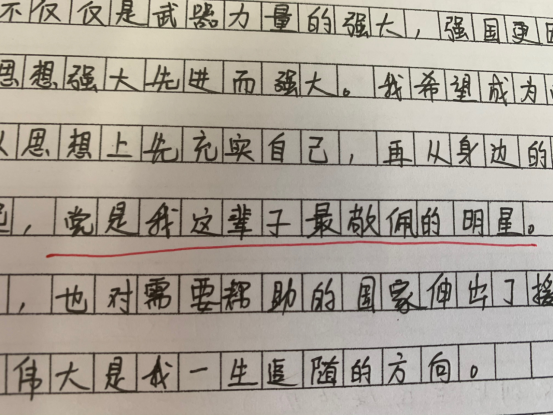 不仅仅是武器力量的强大，强国更
思想强大先进而强大。我希望成为
从思想上先充实自己，再从身边的
，党是我这辈子最敬佩的明星。
，也对需要帮助的国家伸出了援
伟大是我一生追随的方向。